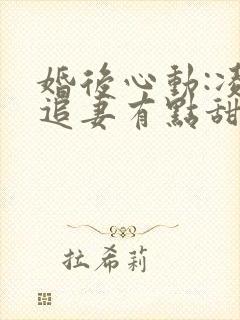 婚後心動:凌
追妻有點甜
拉希莉